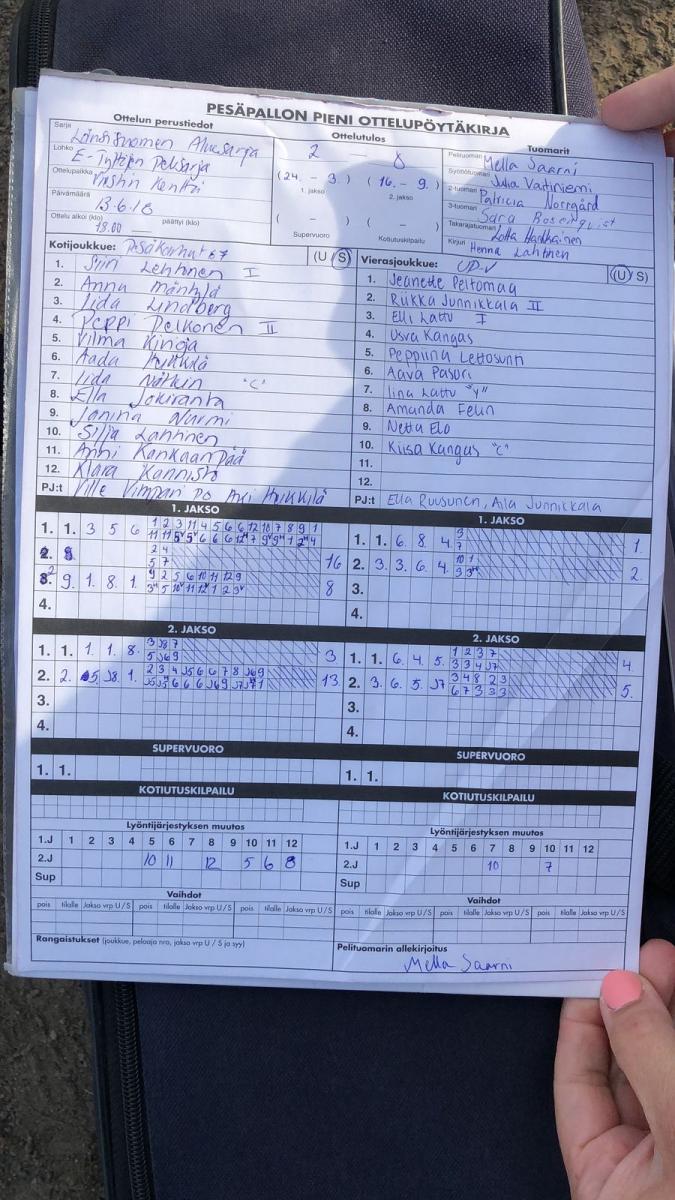 PESÄPALLON PIENI OTTELUPÖYTÄKIRJA
Ottelun perustiedot
Sarja Länsi-Suomen Aluesarja
Lohko E-Tyttöjen
Ottelupaikka Kenttä
Päivämäärä 13.6.18
Ottelu alkoi (klo) 18.00 päättyi (klo)
Ottelutulos
2 — 0
(24. - 3.) (16. - 9.)
1. jakso 2. jakso
( - ) ( - )
Supervuoro Kotiutuskilpailu
Tuomarit
Pelituomari Mella Saarni
Syöttötuomari Julia Vartiniemi
2-tuomari Patricia Norrgård
3-tuomari Sara Rosenqvist
Takarajatuomari Lotta
Kirjuri Henna Lahtinen
Kotijoukkue: Pesäkarhut 67 (U S)
1. Siiri Lehtinen I
2. Anna Mäntylä
3. Iida Lindberg
4. Peppi Pelkonen II
5. Vilma Kinoja
6. Aada Huikkilä
7. Iida "C"
8. Ella Jokiranta
9. Janina Nurmi
10. Silja Lahtinen
11. Anni Kankaanpää
12. Klara Kannisto
PJ:t Ville Huikkilä
Vierasjoukkue: UP-V (U S)
1. Jeanette Peltomaa
2. Riikka Junnikkala II
3. Elli Lattu I
4. Usva Kangas
5. Peppiina Lettosunti
6. Aava Pasuri
7. Iina Lattu "Y"
8. Amanda Felin
9. Netta Elo
10. Kiisa Kangas "C"
11.
12.
PJ:t Ella Ruusunen, Aila Junnikkala
1. JAKSO
1. 1. 3 5 6 1 2 3 11 4 5 6 6 12 10 7 8 9 1
2. 2 4
5 7 16
3. 9. 1. 8. 1. 9 2 5 6 10 11 12 9
8
4.
1. JAKSO
1. 1. 6. 8. 4. 3
7 1.
2. 3. 3. 6. 4. 10 1
2.
3.
4.
2. JAKSO
1. 1. 1. 1. 8. 3 J8 7
5 J6 9 3
2. 2. J5. J8. 1. 2 3 4 J5 6 6 7 8 J6 9
13
3.
4.
2. JAKSO
1. 1. 6. 4. 5. 1 2 3 7
3 3 4 J7 4.
2. 3. 6. 5. J7 3 4 8 2 3
6 7 3 3 3 5.
3.
4.
SUPERVUORO
1. 1.
SUPERVUORO
1. 1.
KOTIUTUSKILPAILU
KOTIUTUSKILPAILU
Lyöntijärjestyksen muutos
1.J 1 2 3 4 5 6 7 8 9 10 11 12
2.J 10 11 12 5 6 8
Sup
Lyöntijärjestyksen muutos
1.J 1 2 3 4 5 6 7 8 9 10 11 12
2.J 10 7
Sup
Vaihdot
pois tilalle Jakso vrp U / S pois tilalle Jakso vrp U / S pois tilalle Jakso vrp U / S
Vaihdot
pois tilalle Jakso vrp U / S pois tilalle Jakso vrp U / S pois tilalle Jakso vrp U / S
Rangaistukset (joukkue, pelaaja nro, jakso vrp U / S ja syy)
Pelituomarin allekirjoitus
Mella Saarni